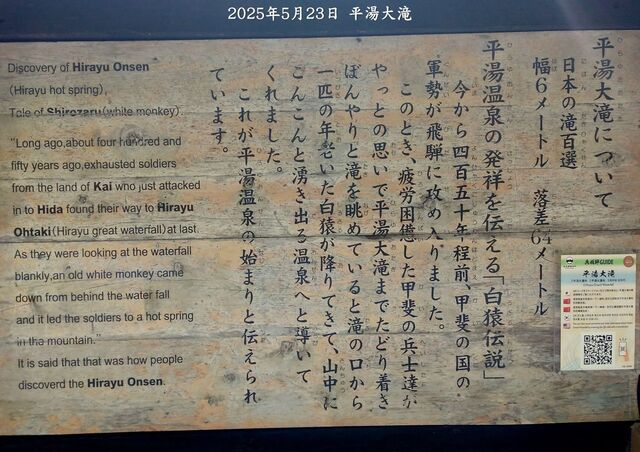 2025年5月23日 平湯大滝
平湯大滝について
日本の滝百選
幅6メートル 落差64メートル
平湯温泉の発祥を伝える「白猿伝説」
今から四百五十年程前、甲斐の国の
軍勢が飛騨に攻め入りました。
このとき、疲労困憊した甲斐の兵士達が
やっとの思いで平湯大滝までたどり着き
ぼんやりと滝を眺めていると滝の口から
一匹の年老いた白猿が降りてきて、山中に
こんこんと湧き出る温泉へと導いて
くれました。
これが平湯温泉の始まりと伝えられ
ています。
Discovery of Hirayu Onsen
(Hirayu hot spring),
Tale of Shirozaru(white monkey).
"Long ago,about four hundred and
fifty years ago,exhausted soldiers
from the land of Kai who just attacked
in to Hida found their way to Hirayu
Ohtaki(Hirayu great waterfall)at last.
As they were looking at the waterfall
blankly,an old white monkey came
down from behind the water fall
and it led the soldiers to a hot spring
in the mountain."
It is said that that was how people
discoverd the Hirayu Onsen.
GUIDE
平湯大滝